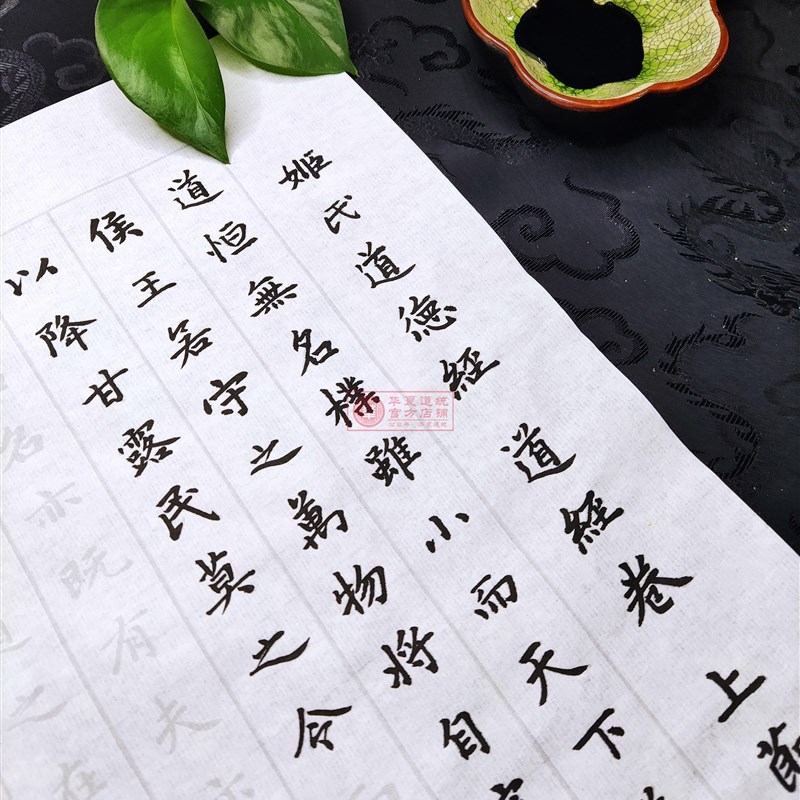 姬氏道徳經 道經卷上
道恒無名樸雖小而天下
侯王若守之萬物將自
以降甘露民莫之令
名亦既有夫
之在
华夏道统
官方店铺